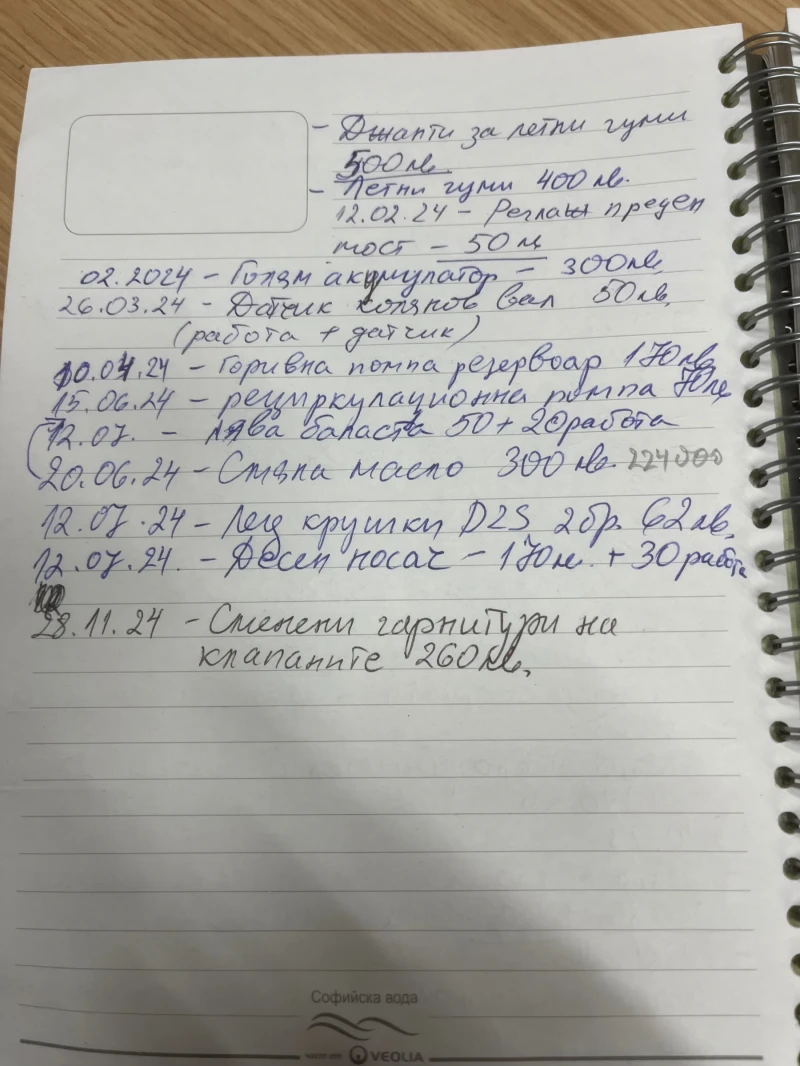 - Джапти за летни гуми
500лв.
- Летни гуми 400лв.
12.02.24 - Реглаж преден
мост - 50лв
02.2024 - Голям акумулатор - 300лв.
26.03.24 - Датчик колянов вал 50лв.
(работа + датчик)
10.04.24 - Горивна помпа резервоар 170лв.
15.06.24 - рециркулационна помпа 70лв
12.07. - лява баласта 50+20работа
20.06.24 - Смяна масло 300лв. 224000
12.07.24 - Лед крушки D2S 2бр. 62лв.
12.07.24. - Десен носач - 170лв. + 30работа
28.11.24 - Сменени гарнитури на
клапаните 260лв.
Софийска вода
VEOLIA